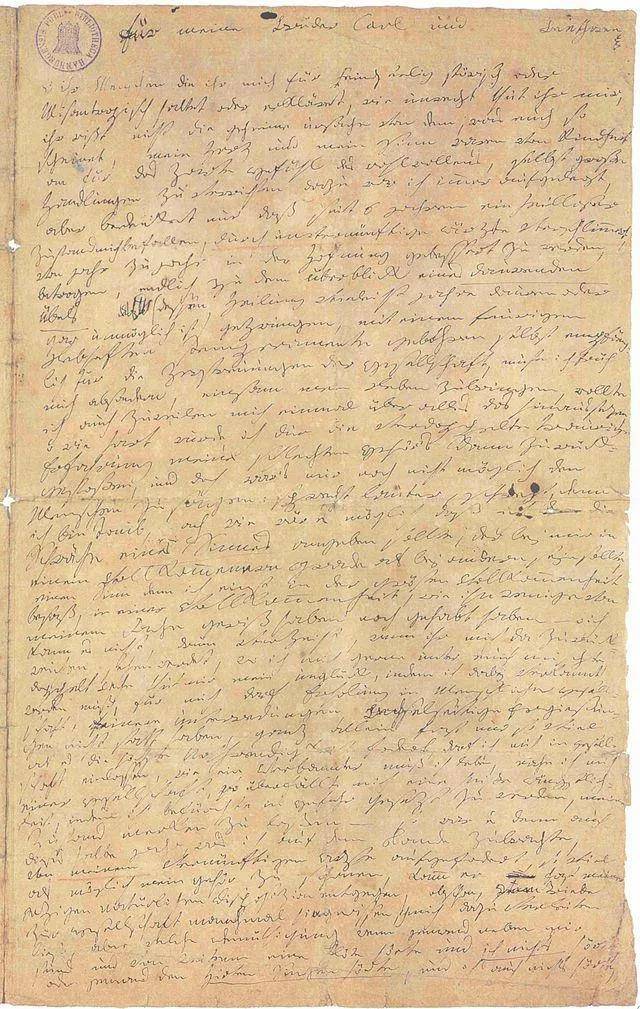 für meine Brüder Carl und Beethoven
o ihr Menschen die ihr mich für Feindseelig störisch oder
Misantropisch haltet oder erkläret, wie unrecht thut ihr mir,
ihr wißt nicht die geheime urßache von dem, was euch so
scheinet, mein Herz und mein Sinn waren von Kindheit
an für das Zarte Gefühl des wohlwollens, selbst große
Handlungen zu verrichten dazu war ich immer aufgelegt,
aber bedenket nur daß seit 6 Jahren ein heilloser
Zustand mich befallen, durch unvernünftige ärzte verschlimmert,
von Jahr zu Jahr in der Hofnung gebessert zu werden,
betrogen, endlich zu dem überblick eines daurenden
Übels (dessen Heilung vieleicht Jahre dauren oder
gar unmöglich ist) gezwungen, mit einem feurigen
Lebhaften Temperamente gebohren selbst empfäng-
lich für die Zerstreuungen der Gesellschaft, muste ich früh
mich absondern, einsam mein Leben zubringen, wollte
ich auch zuweilen mich einmal über alles das hinaussezen,
o wie hart wurde ich dur die verdoppelte traurige
Erfahrung meines schlechten Gehör's dann zurück-
gestoßen, und doch war's mir noch nicht möglich den
Menschen zu sagen: sprecht lauter, schreyt, denn
ich bin Taub, ach wie wär es möglich daß ich die
Schwäche eines Sinnes angeben sollte, der bey mir in
einem vollkommenern Grade als bey andern seyn sollte,
einen Sinn denn ich einst in der grösten Vollkommenheit
besaß, in einer Vollkommenheit, wie ihn wenige von
meinem Fache gewiß haben noch gehabt haben – o ich
kann es nicht, drum verzeiht, wenn ihr mich da zurück-
weichen sehen werdet, wo ich mich gerne unter euch mischte
doppelt wehe thut mir mein unglück, indem ich dabey verkannt
werden muß, für mich darf Erholung in Menschlicher Gesell-
schaft, feinere unterredungen, Wechselseitige Ergießun-
gen nicht statt haben, ganz allein fast nur so viel
als es die höchste Nothwendigkeit fodert, darf ich mich in gesell-
schaft einlassen, wie ein Verbannter muß ich leben, nahe ich mich
einer Gesellschaft, so überfällt mich eine heiße ängstlich-
keit, indem ich befürchte in Gefahr gesezt zu werden, meinen
Zustand merken zu laßen – so war es denn auch
dieses halbe Jahr, was ich auf dem Lande zubrachte,
von meinem vernünftigen Arzte aufgefodert, so viel
als möglich mein Gehör zu schonen, kamm er fast meiner
jezigen natürlichen Disposizion entgegen, obschon, Vom Triebe
zur Gesellschaft manchmal hingerissen, ich mich dazu verleiten
ließ, aber welche Demüthigung wenn jemand neben mir
stund und von weitem eine flöte hörte und ich nichts hörte
oder jemand den Hirten Singen hörte, und ich auch nichts hörte,